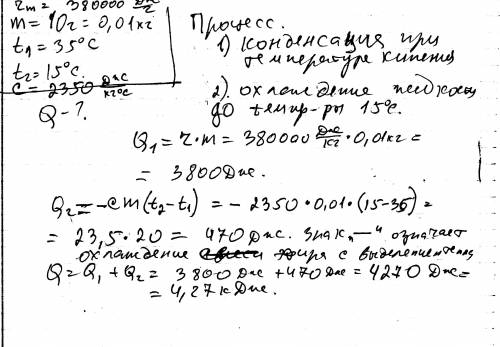 r_m = 380000 Дж/кг
m = 10г = 0,01кг
t₁ = 35°C
t₂ = 15°C
c = 2350 Дж/кг°C
Q - ?
Процесс.
1) конденсация при
температуре кипения
2) охлаждение жидкости
до темпер-ры 15°C.
Q₁ = r · m = 380000 Дж/кг · 0,01кг =
= 3800 Дж.
Q₂ = -cm(t₂-t₁) = -2350 · 0,01 · (15-35) =
= 23,5 · 20 = 470 Дж. Знак „—“ означает
охлаждение эфира с выделением тепла
Q = Q₁ + Q₂ = 3800 Дж + 470 Дж = 4270 Дж =
= 4,27 кДж.